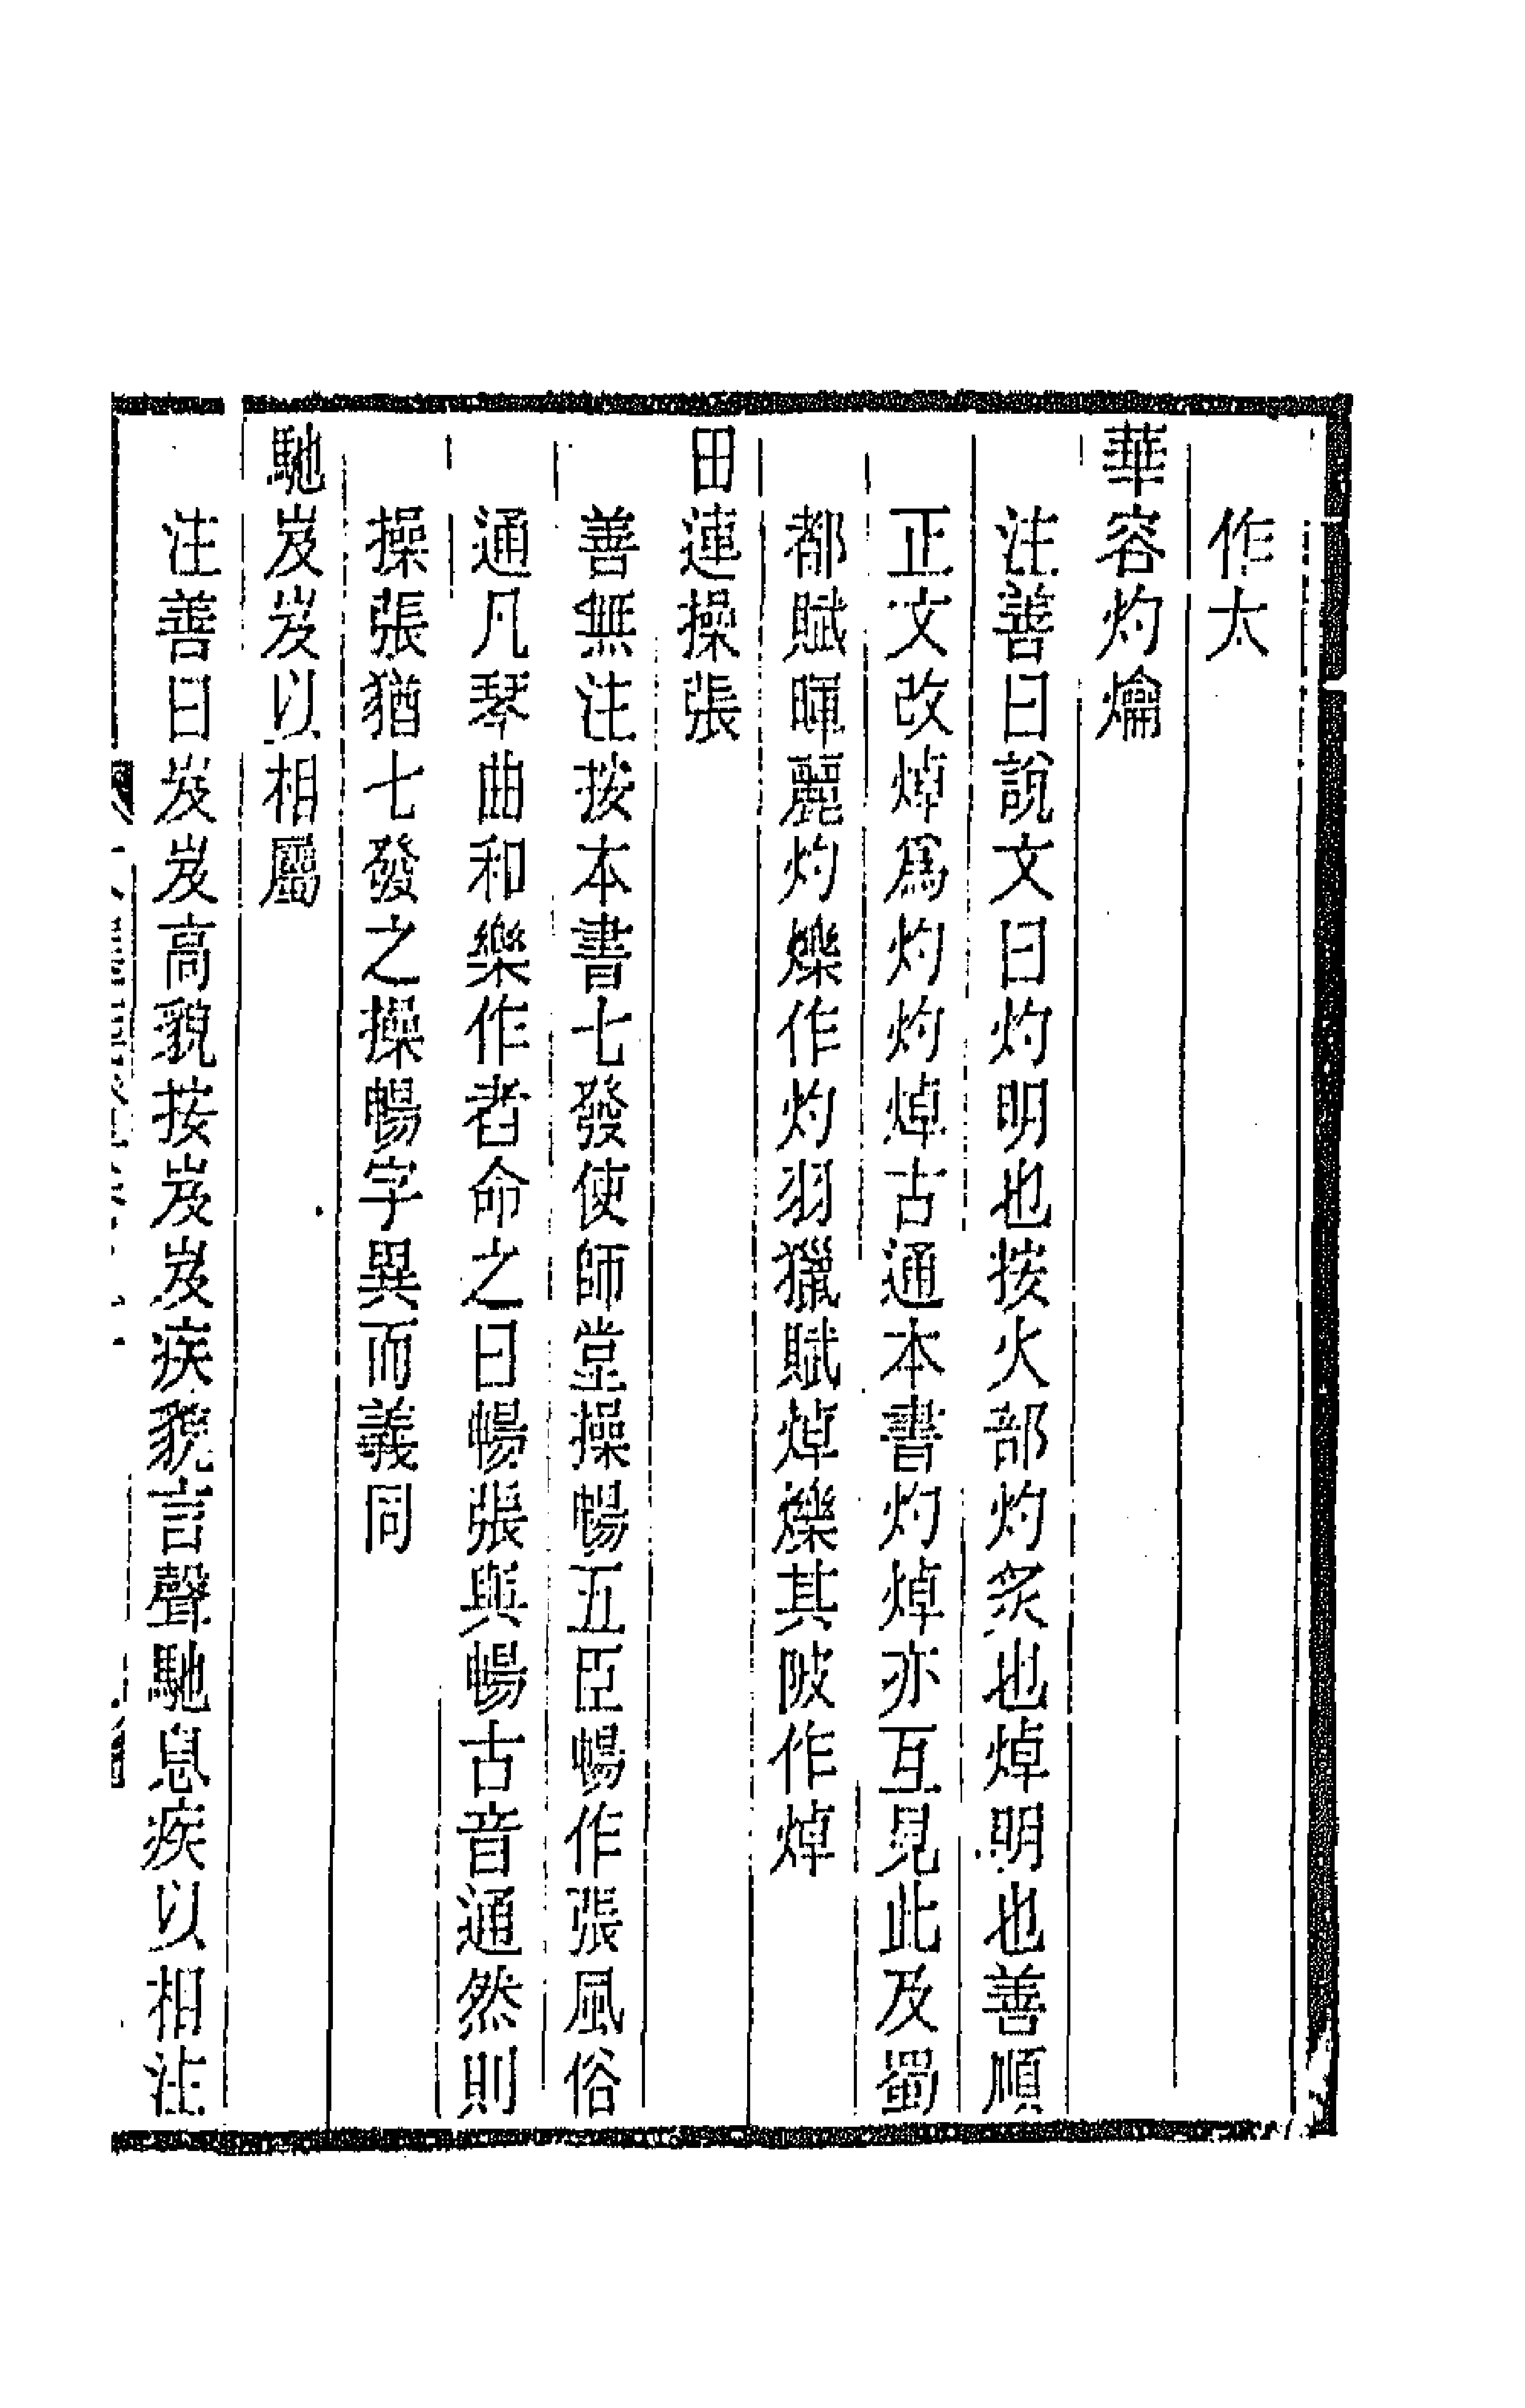 作太
華容灼爚
注善曰說文曰灼明也按火部灼炙也焯明也善順
正文改焯爲灼灼焯古通本書灼焯亦互見此及蜀
都賦暉麗灼爍作灼羽獵賦焯爍其陂作焯
田連操張
善無注按本書七發使師堂操暢五臣暢作張風俗
通凡琴曲和樂作者命之曰暢張與暢古音通然則
操張猶七發之操暢字異而義同
馳岌岌以相屬
注善曰岌岌高貌按岌岌疾貌言聲馳息疾以相注